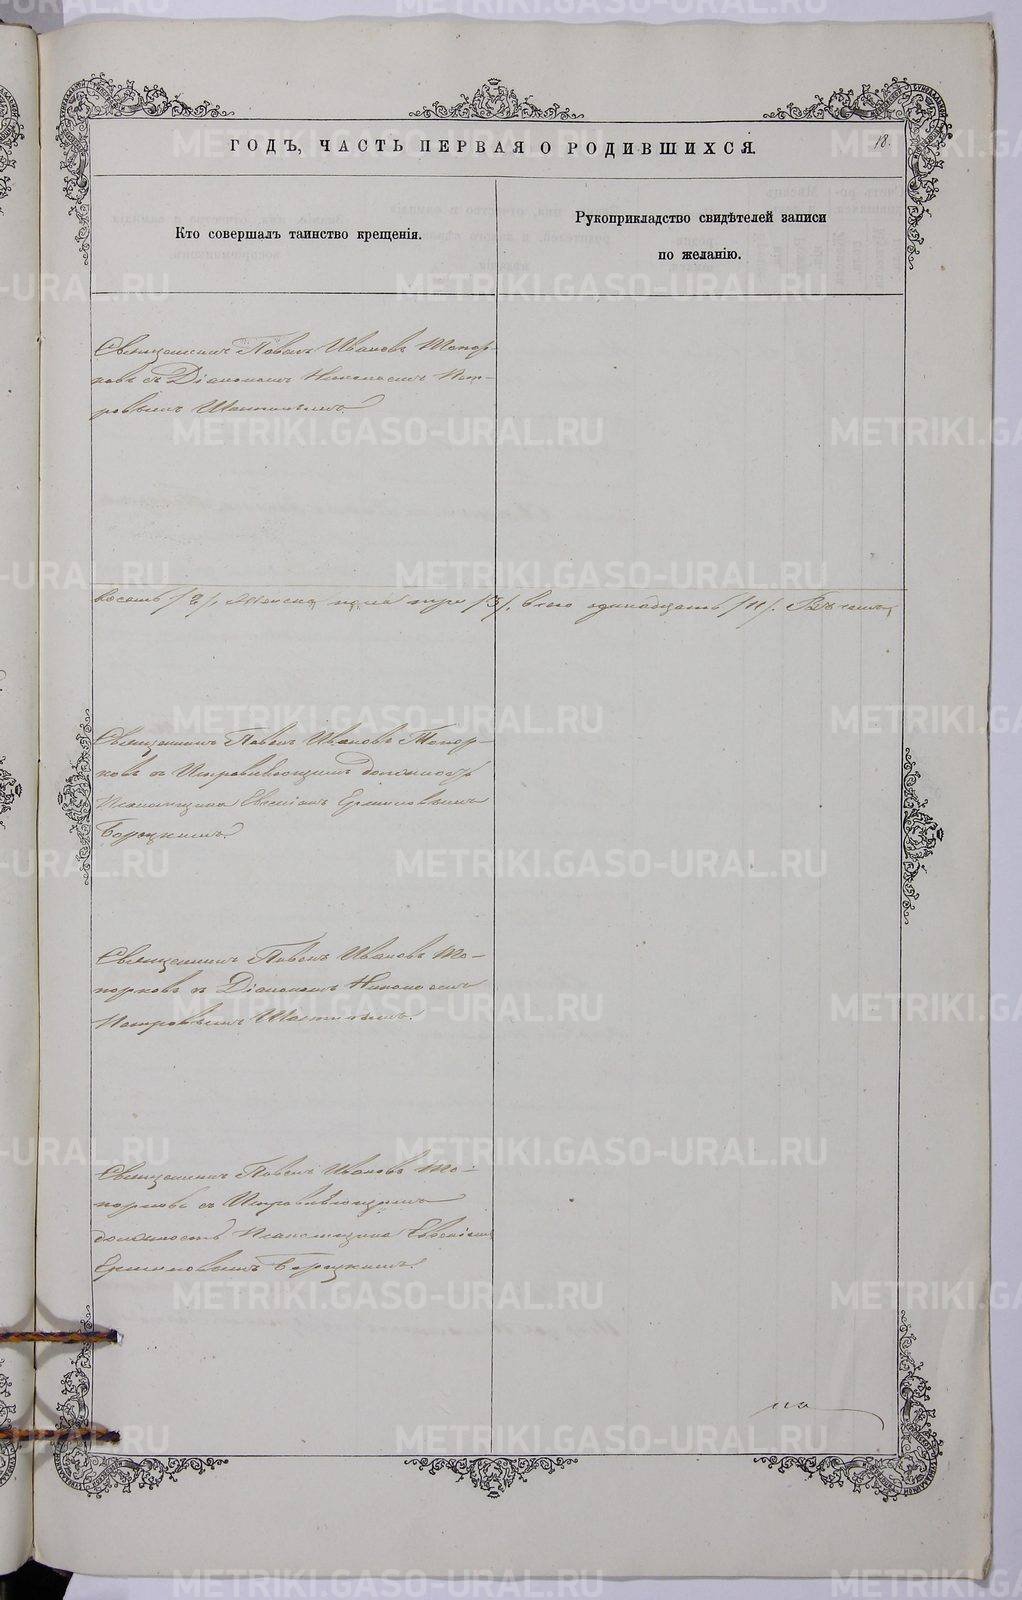 ГОДЪ, ЧАСТЬ ПЕРВАЯ О РОДИВШИХСЯ.
18.
Кто совершалъ таинство крещенія.
Рукоприкладство свидѣтелей записи
по желанію.
Священникъ Павелъ Ивановъ Топор-
ковъ съ Діакономъ Николаемъ Пет-
ровымъ
восемь /8/, женска пола три /3/, всего одинадцать /11/. Въ томъ
Священникъ Павелъ Ивановъ Топор-
ковъ съ Исправляющимъ должность
Псаломщика Евсевіемъ Ермиловымъ
Борецкимъ.
Священникъ Павелъ Ивановъ То-
порковъ съ Діакономъ Николаемъ
Петровымъ
Священникъ Павелъ Ивановъ То-
порковъ съ Исправляющимъ
должность Псаломщика Евсевіемъ
Ермиловымъ Борецкимъ.
по
METRIKI.GASO-URAL.RU